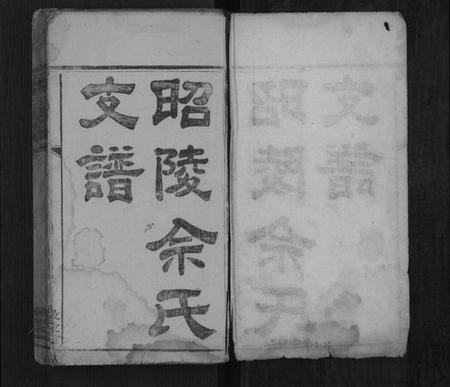 昭陵佘氏
支譜